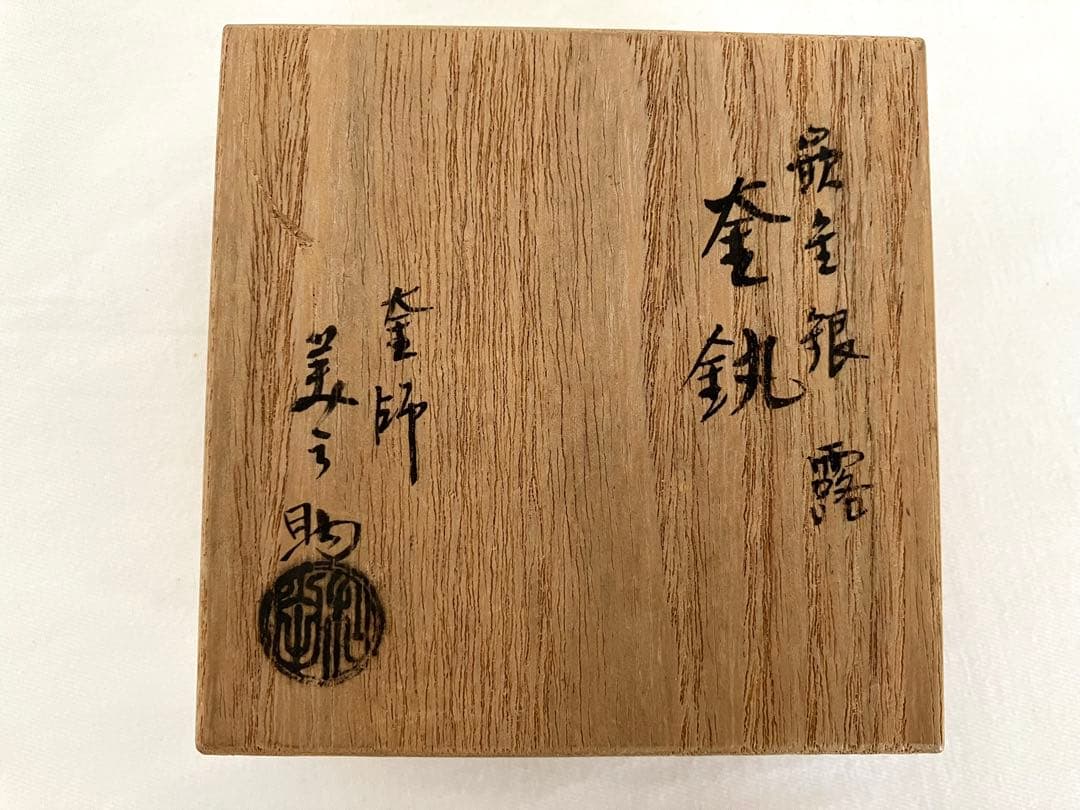 嵌金銀露
釜釻
釜師
美之助